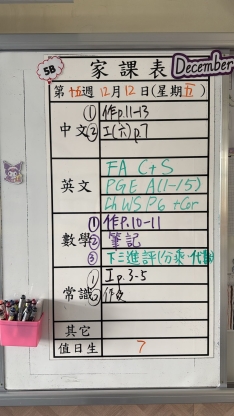 5B 家課表 December
第十五週 12月12日(星期五)
中文 ① 作p.11-13
② 工(六)p.7
英文 FA C+S
PGE A(1-15)
Ch WS P6 +Cor
數學 ① 作P.10-11
② 筆記
③ 下三進評(分乘、代數)
常識 ① 工p.3-5
② 作
其它
值日生 7